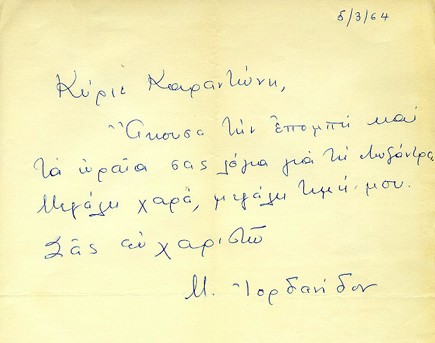 5/3/64
Κύριε Καραντώνη,
Ἄκουσα τήν ἐκπομπή καί
τά ὡραῖα σας λόγια γιά τή Λωξάντρα.
Μεγάλη χαρά, μεγάλη τιμή μου.
Σᾶς εὐχαριστῶ
Μ. Ἰορδανίδου